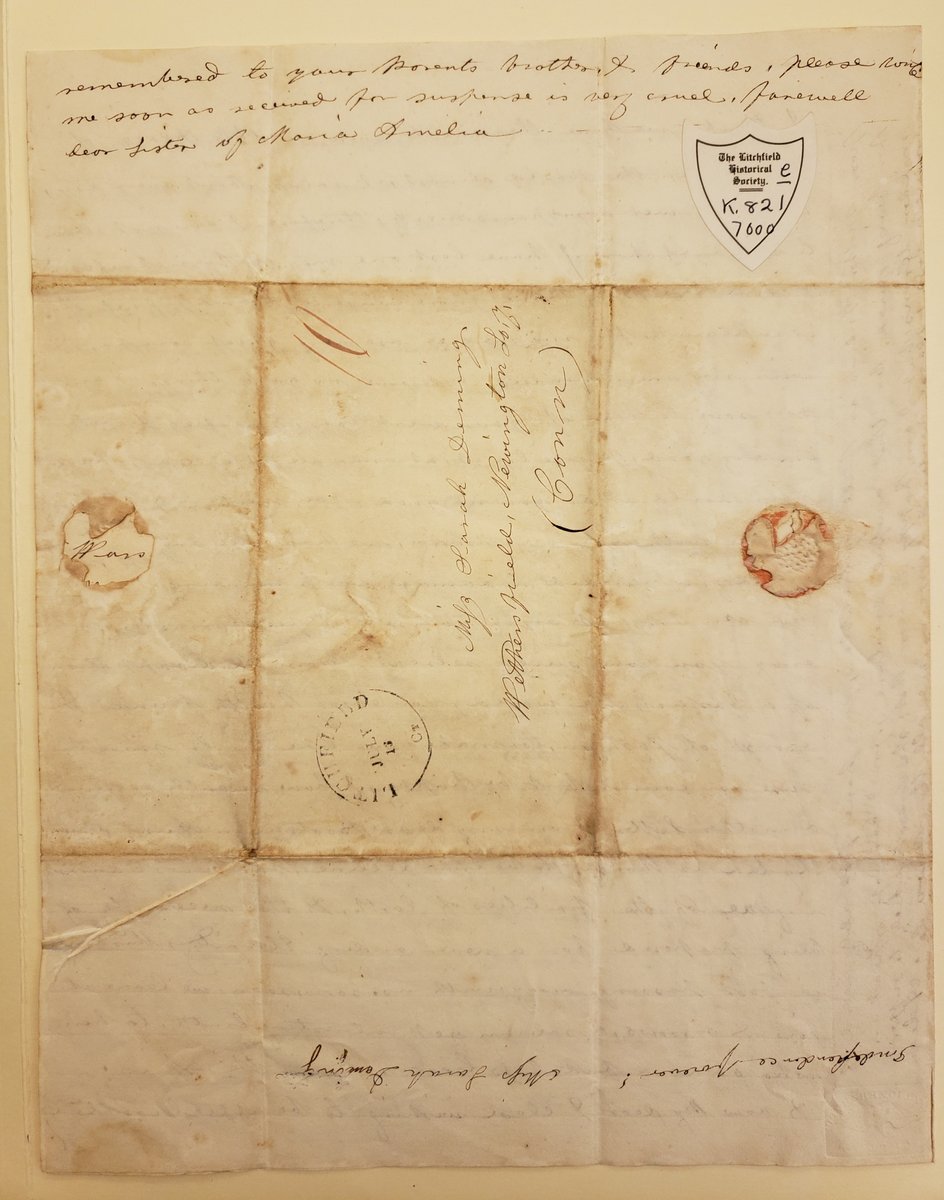 remembered to your Parents brother, & friends, please
me soon as received for suspense is very cruel, farewell
dear Sister of Maria Amelia
The Litchfield
Historical
Society.
e
K. 821
7000
10
Miss Sarah Deming
Wethersfield, Newington
(Conn)
LITCHFIELD
JULY
13
CT
Miss Sarah Deming
Independence forever!